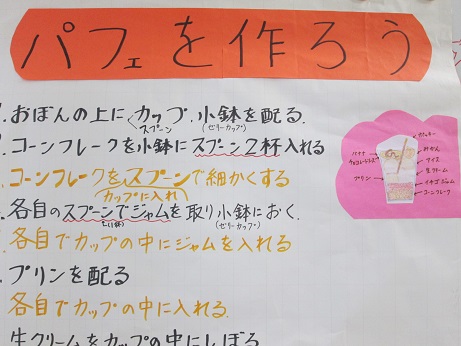 パフェを作ろう
おぼんの上にカップ、小鉢を配る。
スプーン
(ゼリーカップ)
コーンフレークを小鉢にスプーン2杯入れる
コーンフレークをスプーンで細かくする
カップに入れ
各自のスプーンでジャムを取り小鉢におく。
(ゼリーカップ)
各自でカップの中にジャムを入れる
プリンを配る
各自でカップの中に入れる。
生クリームをカップの中にしぼる
バナナ
プリン
みかん
アイス
生クリーム
イチゴジャム
コーンフレーク